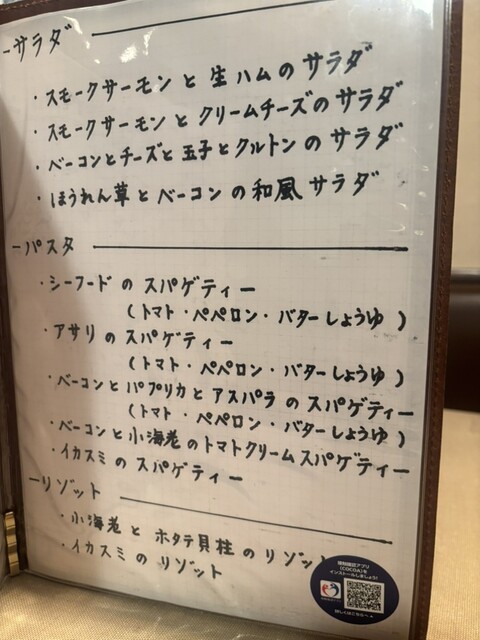 ーサラダ
・スモークサーモンと生ハムのサラダ
・スモークサーモンとクリームチーズのサラダ
・ベーコンとチーズと玉子とクルトンのサラダ
・ほうれん草とベーコンの和風サラダ
ーパスタ
・シーフードのスパゲティー
(トマト・ペペロン・バターしょうゆ)
・アサリのスパゲティー
(トマト・ペペロン・バターしょうゆ)
・ベーコンとパプリカとアスパラのスパゲティー
(トマト・ペペロン・バターしょうゆ)
・ベーコンと小海老のトマトクリームスパゲティー
・イカスミのスパゲティー
ーリゾット
・小海老とホタテ貝柱のリゾット
・イカスミのリゾット
接触確認アプリ
(COCOA)を
インストールしましょう!
詳しくはこちら